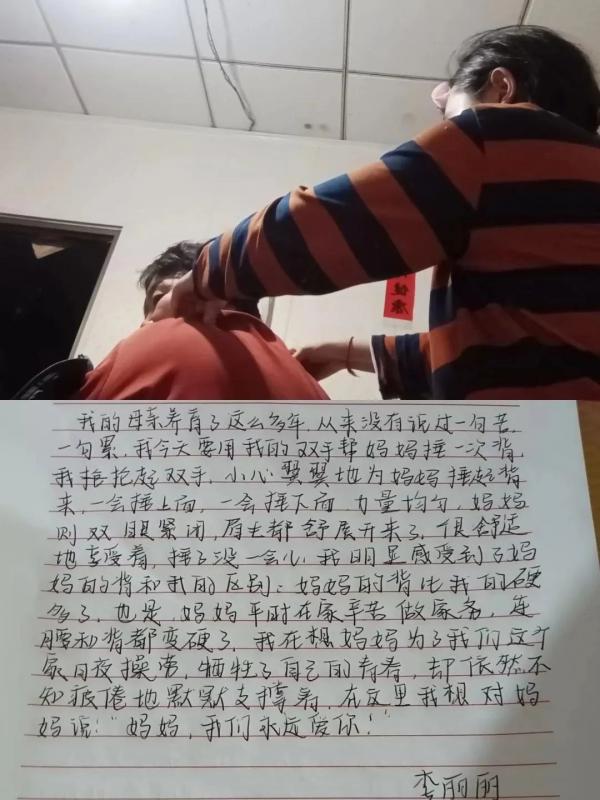 健康
我的母亲养育了这么多年,从来没有说过一句苦
一句累,我今天要用我的双手帮妈妈捶一次背,
我抡起双手,小心翼翼地为妈妈捶起背
来,一会捶上面,一会捶下面,力量均匀,妈妈
则双眼紧闭,眉毛都舒展开来了,很舒适
地享受着,捶了没一会儿,我明显感受到了妈
妈的背和我的区别:妈妈的背比我的硬
多了,也是,妈妈平时在家辛苦做家务,连
腰和背都变硬了,我在想妈妈为了我们这个
家日夜操劳,牺牲了自己的青春,却依然不
知疲倦地默默支撑着,在这里我想对妈
妈说:"妈妈,我们永远爱你!"
李丽丽